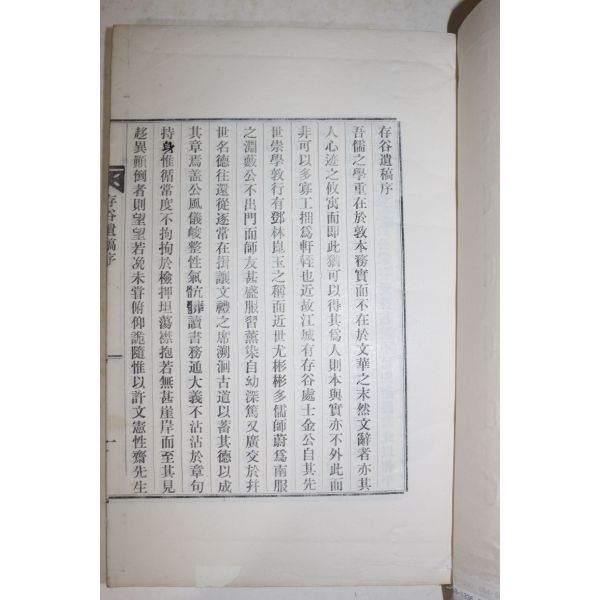 存谷遺稿序
吾儒之學重在於敦本務實而不在於文華之末然文辭者亦其
人心迹之攸寓而卽此猶可以得其爲人則本與實亦不外此而
非可以多寡工拙爲軒輊也近故江城有存谷處士金公自其先
世崇學敦行有鄧林崑玉之稱而近世尤彬彬多儒師蔚爲南服
之淵藪公不出門而師友甚盛服習薰染自幼深篤又廣交於幷
世名德往還從逐常在揖讓文禮之席溯洄古道以蓄其德以成
其章焉蓋公風儀峻整性氣伉 讀書務通大義不沾沾於章句
持身惟循常度不拘拘於檢押坦蕩襟抱若無甚崖岸而至其見
趍異顚倒者則望望若凂未甞俯仰詭隨惟以許文憲性齋先生
存谷遺稿序
一